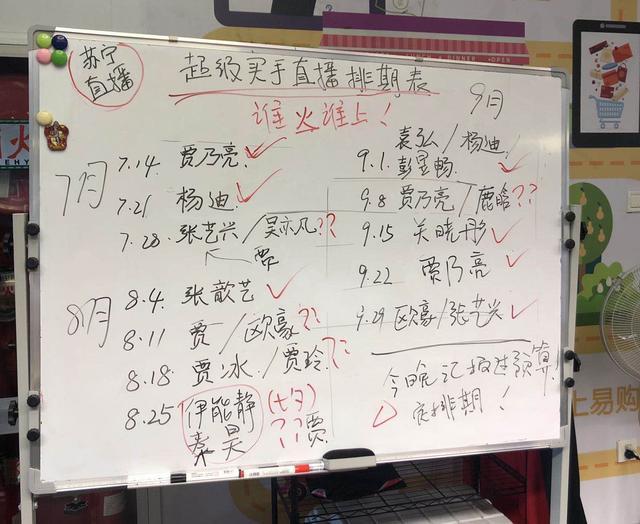 苏宁
直播
超级买手直播排期表
谁火谁上!
7月
7.14 贾乃亮
7.21 杨迪
7.28 张艺兴/吴亦凡??
贾
8月
8.4 张歆艺
8.11 贾/欧豪??
8.18 贾冰/贾玲??
8.25 伊能静
秦昊
(七夕)
??贾
9月
袁弘/杨迪/
9.1 彭昱畅
9.8 贾乃亮/鹿晗??
9.15 关晓彤
9.22 贾乃亮
9.29 欧豪/张艺兴
今晚记报过预算!
定排期!
上易购